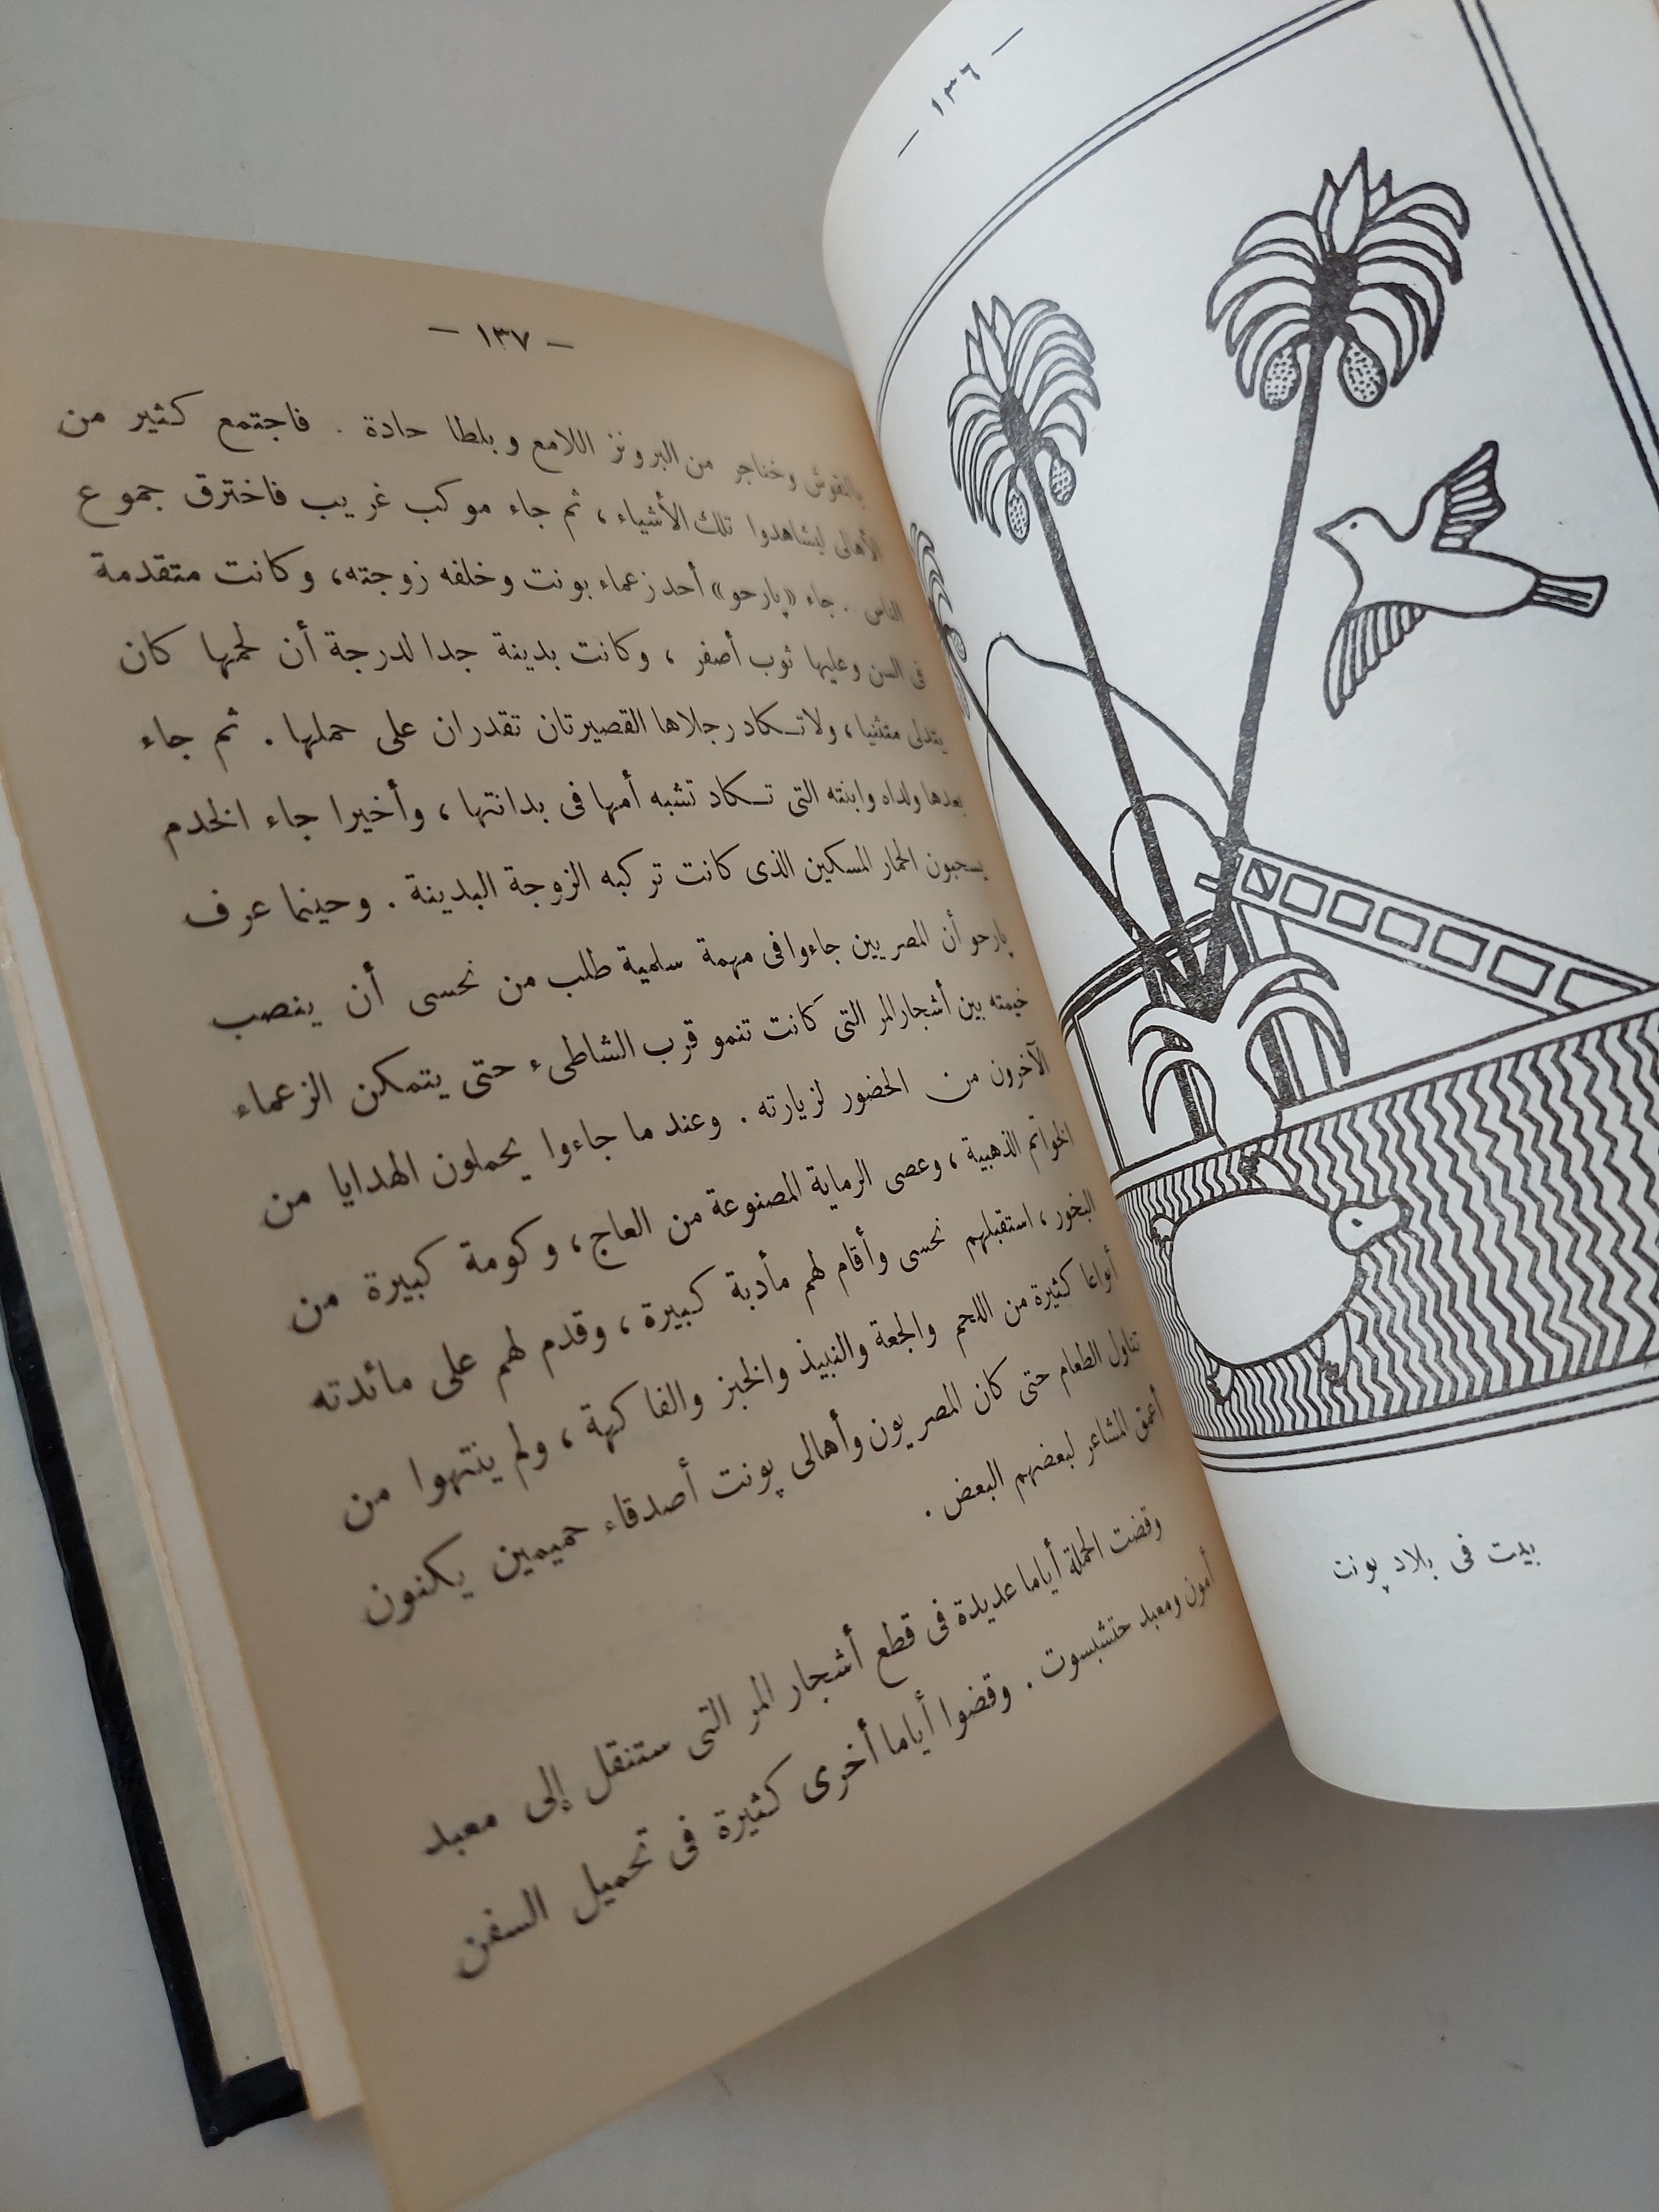 — ١٣٦ —
بيت فى بلاد پونت
— ١٣٧ —
بالنقوش وخناجر من البرونز اللامع وبلطا حادة . فاجتمع كثير من
الأهالى ليشاهدوا تلك الأشياء ، ثم جاء موكب غريب فاخترق جموع
الناس .. جاء «پارحو» أحد زعماء بونت وخلفه زوجته، وكانت متقدمة
فى السن وعليها ثوب أصفر ، وكانت بدينة جدا لدرجة أن لحمها كان
يتدلى متثنيا ، ولا تكاد رجلاها القصيرتان تقدران على حملها . ثم جاء
بعدها ولداه وابنته التى تكاد تشبه أمها فى بدانتها ، وأخيرا جاء الخدم
يسحبون الحمار المسكين الذى كانت تركبه الزوجة البدينة . وحينما عرف
پارحو أن المصريين جاءوا فى مهمة سلمية طلب من نحسى أن ينصب
خيمته بين أشجار المر التى كانت تنمو قرب الشاطىء حتى يتمكن الزعماء
الآخرون من الحضور لزيارته . وعند ما جاءوا يحملون الهدايا من
الخواتم الذهبية ، وعصى الرماية المصنوعة من العاج ، وكومة كبيرة من
البخور ، استقبلهم نحسى وأقام لهم مأدبة كبيرة ، وقدم لهم على مائدته
أنواعا كثيرة من اللحم والجعة والنبيذ والخبز والفاكهة ، ولم ينتهوا من
تناول الطعام حتى كان المصريون وأهالى پونت أصدقاء حميمين يكنون
أعمق المشاعر لبعضهم البعض .
وقضت الحملة أياما عديدة فى قطع أشجار المر التى ستنقل إلى معبد
أمون ومعبد حتشبسوت . وقضوا أياما أخرى كثيرة فى تحميل السفن